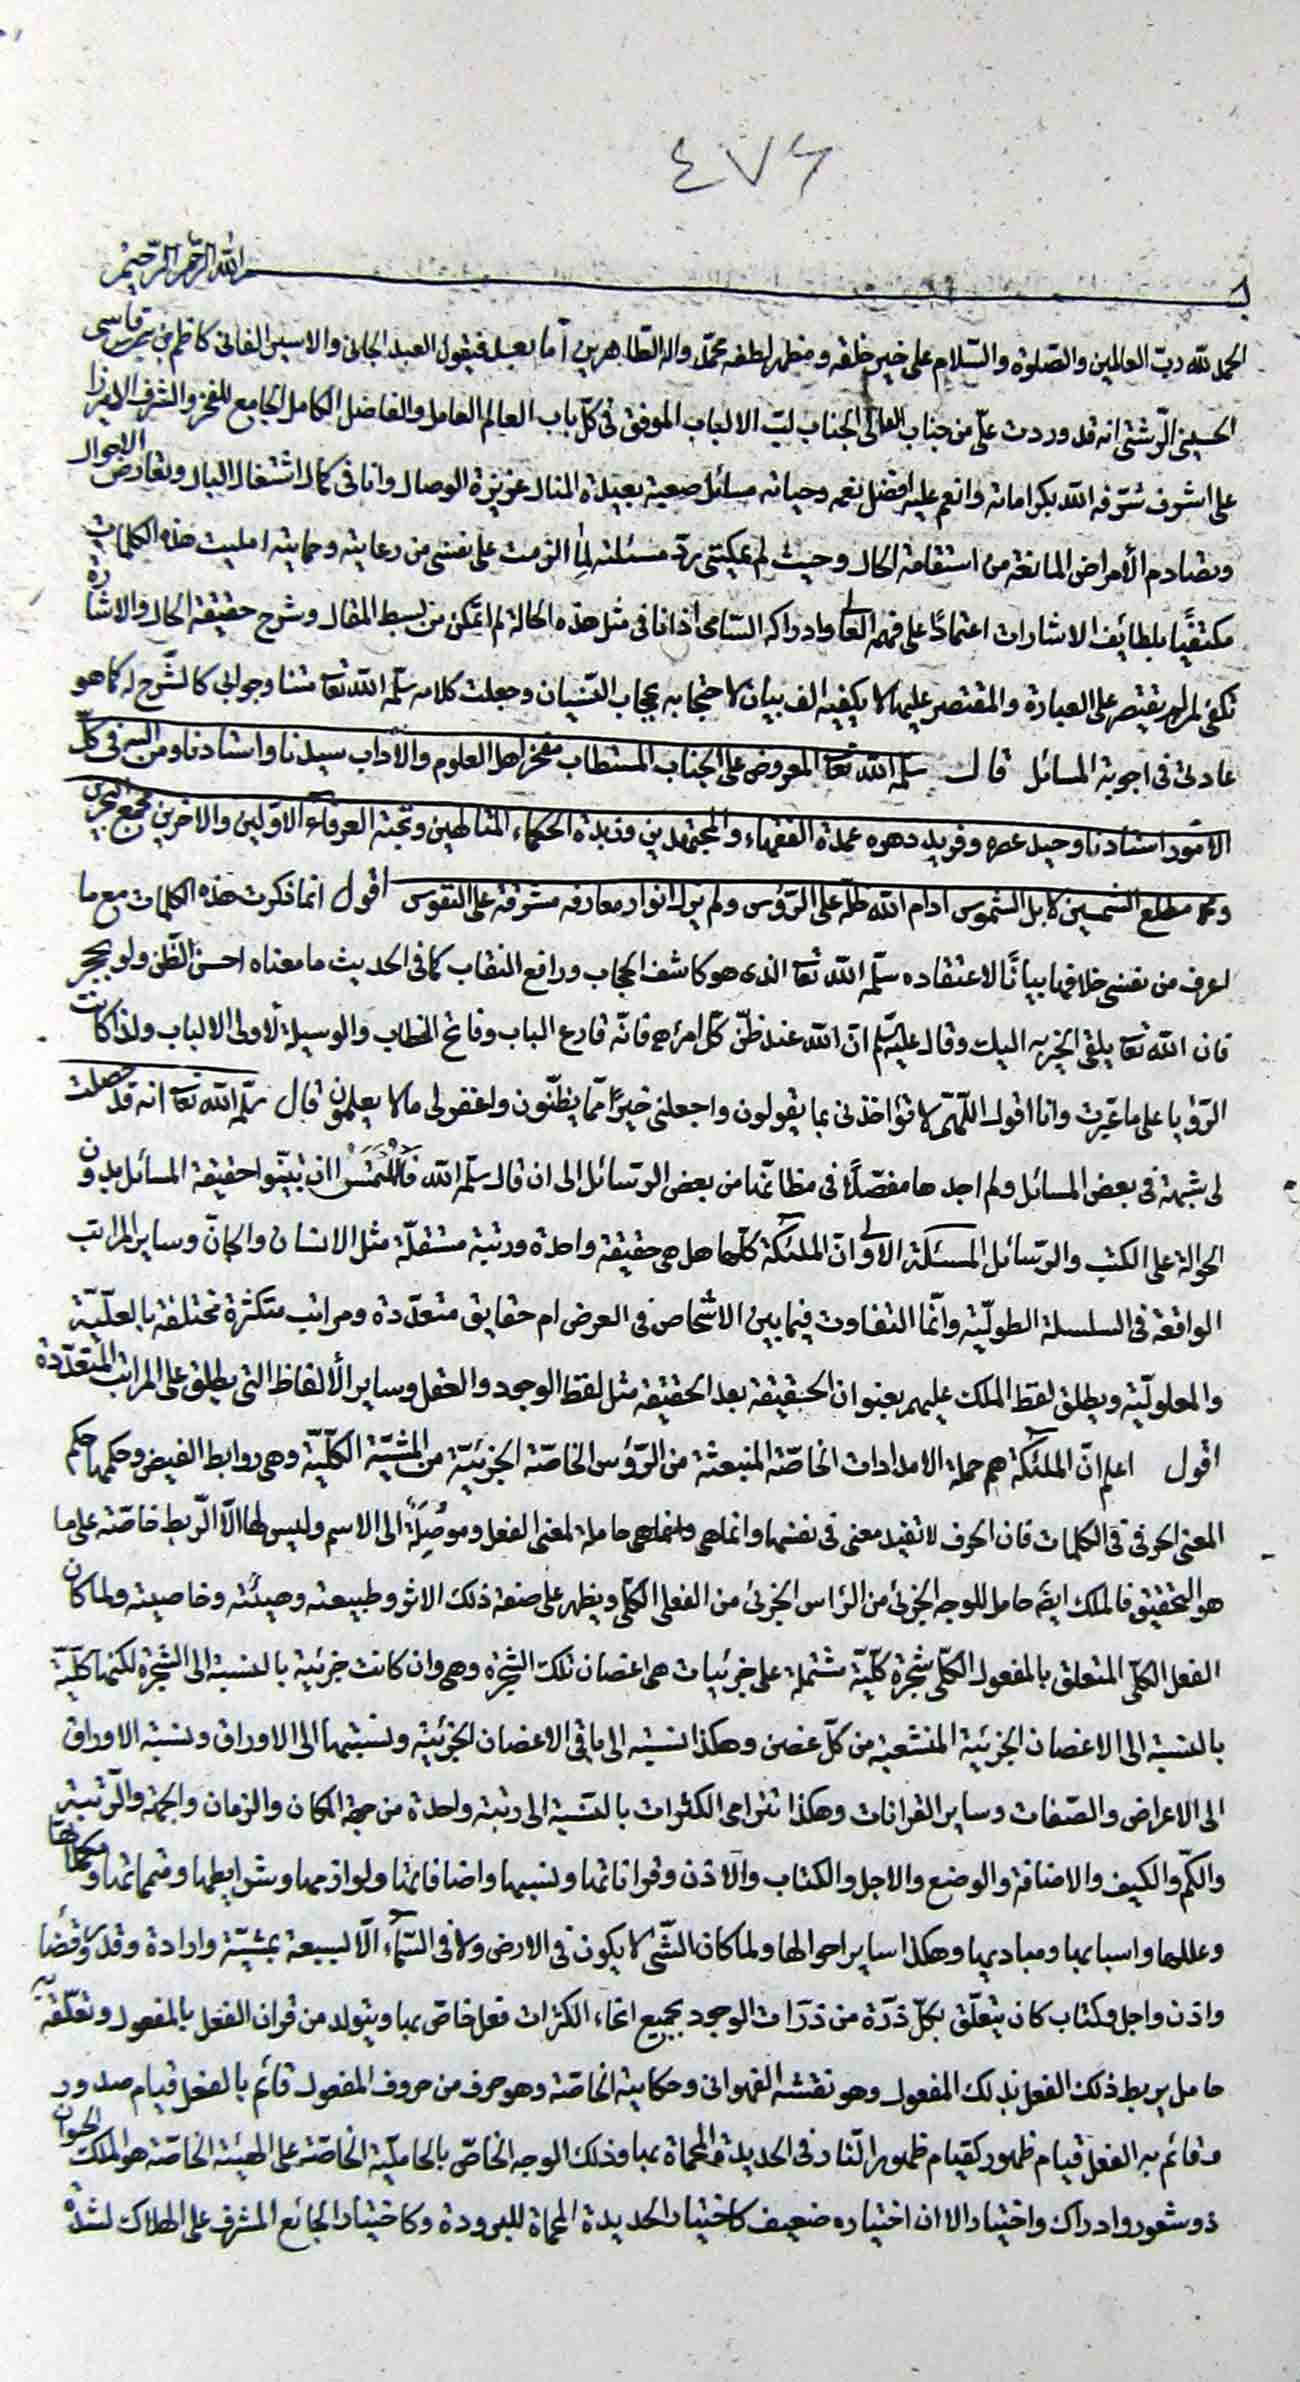 ٤٧٦
بسم الله الرحمن الرحيم
الحمد لله ربّ العالمين والصلوة والسّلام على خير خلقه ومظهر لطفه محمّد واله الطّاهرين امّا بعد فيقول العبد الجانى والاسير الفانى كاظم بن قاسم
الحسينى الرّشتى انه قد وردت علىّ من جناب العالى الجناب لبّ الالباب الموفق فى كلّ باب العالم العامل والفاضل الكامل الجامع للفخر والشرف
على اشرف شرّفه الله بكراماته وانعم عليه افضل نعمه وحياته مسائل صعبة بعيدة المنال عزيزة الوصال وانا فى كمال اشتغال البال وتعارض الاحوال
وتصادم الأمراض المانعة من استقامة الحال وحيث لم يمكننى ردّ مسئلته لما الزمت على نفسى من رعايته وحمايته امليت هذه الكلمات
مكتفيًا بلطايف الاشارات اعتمادًا على فهمه العالى وادراكه السّامى اذ انا فى مثل هذه الحالة لم اتمكن من بسط المقال وشرح حقيقة الحال والاشارة
تكفى لمن لم يقتصر على العبارة والمقتصر عليها لا يكفيه الف بيان لاحتجابه بحجاب النّسيان وجعلت كلامه سلّمه الله تعا متنا وجوابى كالشّرح له كما هو
عادتى فى اجوبة المسائل قال سلّمه الله تعا المعروض على الجناب المستطاب مفخر اهل العلوم والأداب سيدنا واستادنا ومن اليه فى كلّ
الامور استنادنا وحيد عصره وفريد دهره عمدة الفقهاء والمجتهدين وزبدة الحكماء المتألهين ونخبة العرفاء الاوّلين والاخرين مجمع البحرين
مطلع الشمسين لا بل الشّموس ادام الله ظلّه على الرّؤس ولم يزل انوار معارفه مشرقة على النفوس اقول انما ذكرت هذه الكلمات مع ما
اعرف من نفسى خلافها بيانًا لاعتقاده سلّمه الله تعا الذى هو كاشف الحجاب ورافع النقاب كما فى الحديث ما معناه احسن الظّن ولو بحجر
فان الله تعا يلقى الخير اليك وقال عليه السّلم انّ الله عند ظنّ كلّ امرء فانّه قارع الباب وفاتح الخطاب والوسيلة لاولى الالباب ولذا كانت
الرّؤيا على ما عبّرت وانا اقول اللّهمّ لا تؤاخذنى بما يقولون واجعلنى خيرًا ممّا يظنّون واغفر لى ما لا يعلمون قال سلّمه الله تعا انه قد حصلت
لى شبهة فى بعض المسائل ولم اجدها مفصّلاً فى مظانّها من بعض الرّسائل الى ان قال سلّمه الله فَالْمُلْتَمَسْ ان تبيّنوا حقيقة المسائل بدون
الحوالة على الكتب والرّسائل المسئلة الاولى انّ الملئكة كلّها هل هى حقيقة واحدة ورتبة مستقلّة مثل الانسان والجانّ وساير المراتب
الواقعة فى السلسلة الطوليّة وانّما التفاوت فيما بين الاشخاص فى العرض ام حقايق متعدّدة ومراتب متكثرة مختلفة بالعلّيّة
والمعلوليّة ويطلق لفظ الملك عليهم بعنوان الحقيقة بعد الحقيقة مثل لفظ الوجود والعقل وساير الألفاظ التى يطلق على المراتب المتعدّدة
اقول اعلم انّ الملئكة هم حملة الامدادات الخاصّة المنبعثة من الرّؤس الخاصّة الجزئيّة من المشيّة الكلّيّة وهى روابط الفيض وحكمها حكم
المعنى الحرفى فى الكلمات فان الحرف لا تفيد معنى فى نفسها وانما هى وانما هى حاملة لمعنى الفعل وموصِلَةً الى الاسم وليس لها الاّ الرّبط خاصّة على ما
هو التحقيق فالملك ايضًا حامل للوجه الجزئى من الرّاس الجزئى من الفعل الكلّى ويظهر على صفة ذلك الاثر وطبيعته وهيئته وخاصيته ولما كان
الفعل الكلّى المتعلق بالمفعول الكلّى شجرة كلّية مشتملة على جزئيات هى اغصان تلك الشجرة وهى وان كانت جزئية بالنسبة الى الشجرة لكنها كلّيّة
بالنسبة الى الاغصان الجزئية المنشعبة من كلّ غصن وهكذا نسبته الى ما فى الاغصان الجزئية ونسبتها الى الاوراق ونسبة الاوراق
الى الاعراض والصّفات وساير القرانات وهكذا تترامى الكثرات بالنّسبة الى رتبة واحدة من جهة المكان والزمان والجهة والرّتبة
والكمّ والكيف والاضافة والوضع والاجل والكتاب والأذن وقراناتها ونسبها واضافاتها ولوازمها وشرايطها ومتمماتها ومكملاتها
وعللها واسبابها ومباديها وهكذا ساير احوالها ولما كان الشّئ لا يكون فى الارض ولا فى السّماء الاّ بسبعة بمشيّة وارادة وقدر وقضاء
واذن واجل وكتاب كان يتعلّق بكلّ ذرّة من ذرّات الوجود بجميع انحاء الكثرات فعل خاصّ بها ويتولد من قران الفعل بالمفعول وتعلّقه به
حامل يربط ذلك الفعل بذلك المفعول وهو نقشه الفهوانى وحكايته الخاصّة وهو حرف من حروف المفعول قائم بالفعل قيام صدور
وقائم به الفعل قيام ظهور كقيام ظهور النّار فى الحديدة المحماة بها وذلك الوجه الخاصّ بالحامليّة الخاصّة على الهيئة الخاصّة هو الملك الحيوان
ذو شعور وادراك واختيار الا ان اختياره ضعيف كاختيار الحديدة المحماة للبرودة وكاختيار الجائع المشرف على الهلاك لشدّة